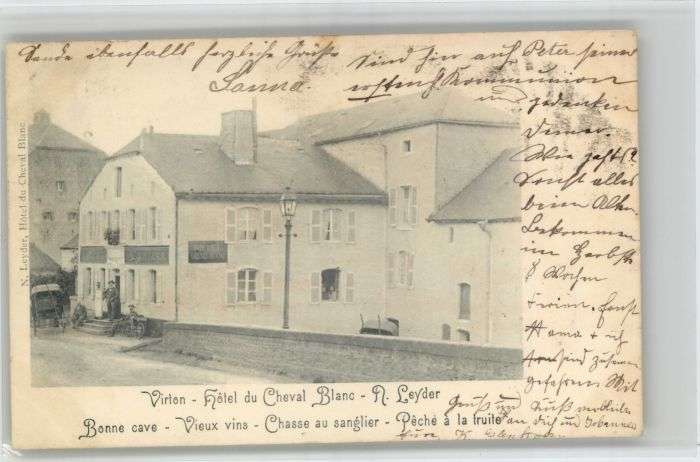 Sende ebenfalls herzliche Grüße
Sanna.
Sind hier auf Peter seiner
ersten Kommunion
und gedenken
Deiner.
Wie geht's?
Sonst alles
beim Alten
bekommen
im Herbst
8 Wochen
Ferien. Ernst
Mama + ich
sind zusammen
gefahren. Mit
Gruß und Kuß
an Dich und Johannes
N. Leyder, Hôtel du Cheval Blanc
Virton - Hôtel du Cheval Blanc - N. Leyder
Bonne cave - Vieux vins - Chasse au sanglier - Pêche à la truite